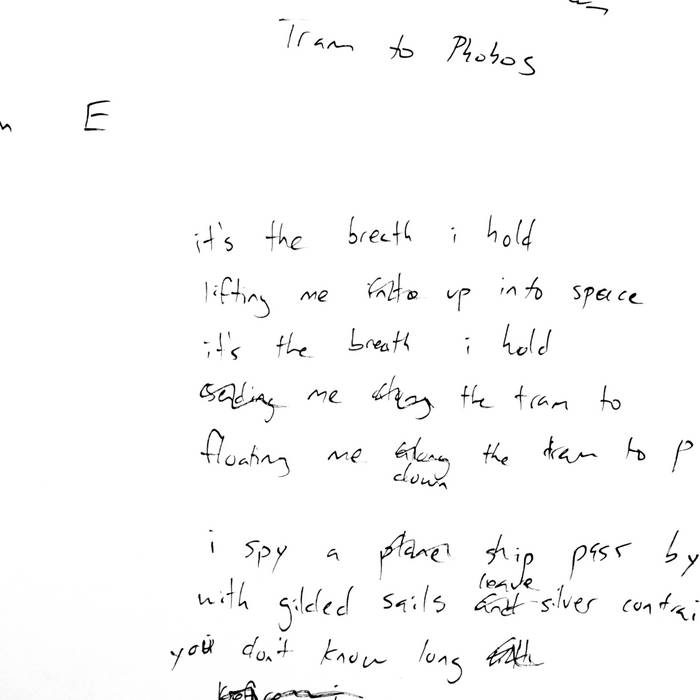 Tram to Phobos
E
it's the breath i hold
lifting me into up into space
it's the breath i hold
sending me along the tram to
floating me along the tram to P
down
i spy a planet ship pass by
leave
with gilded sails and silver contrai
you don't know long